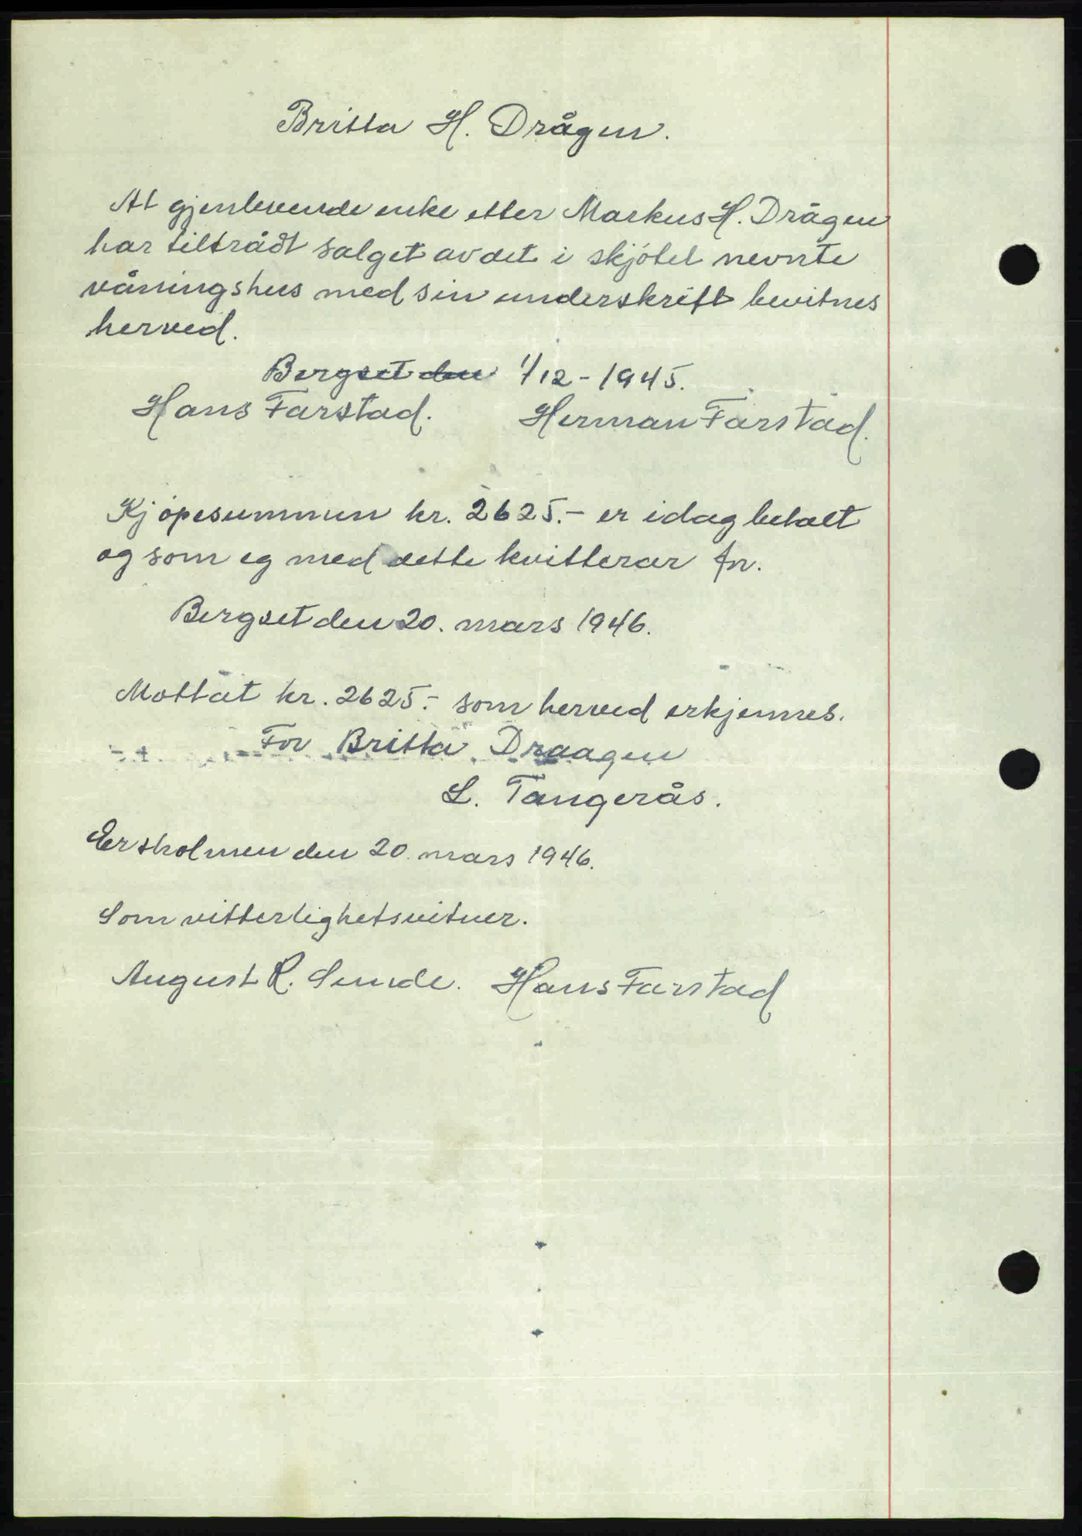 Britta H. Drågen.
At gjenlevende enke etter Markus H. Drågen
har tiltrådt salget av det i skjøtet nevnte
våningshus med sin underskrift bevitnes
herved.
Bergset den 1/12-1945.
Hans Farstad. Herman Farstad.
Kjøpesummen kr. 2625.- er idag betalt
og som eg med dette kvitterar for.
Bergset den 20. mars 1946.
Mottat kr. 2625.- som herved erkjennes.
For Britta Draagen
L. Tangerås.
Ersholmen den 20. mars 1946.
Som vitterlighetsvitner.
August R. Sunde. Hans Farstad